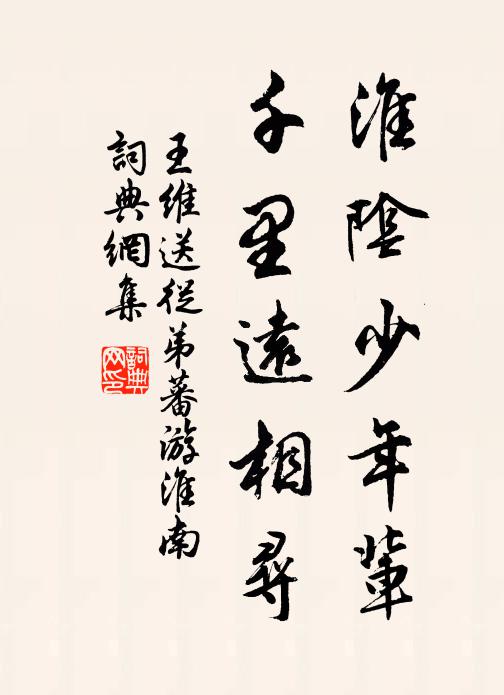 淮陰少年輩
千里遠相尋
王維送從弟蕃游淮南
詞典網集
詞典网印